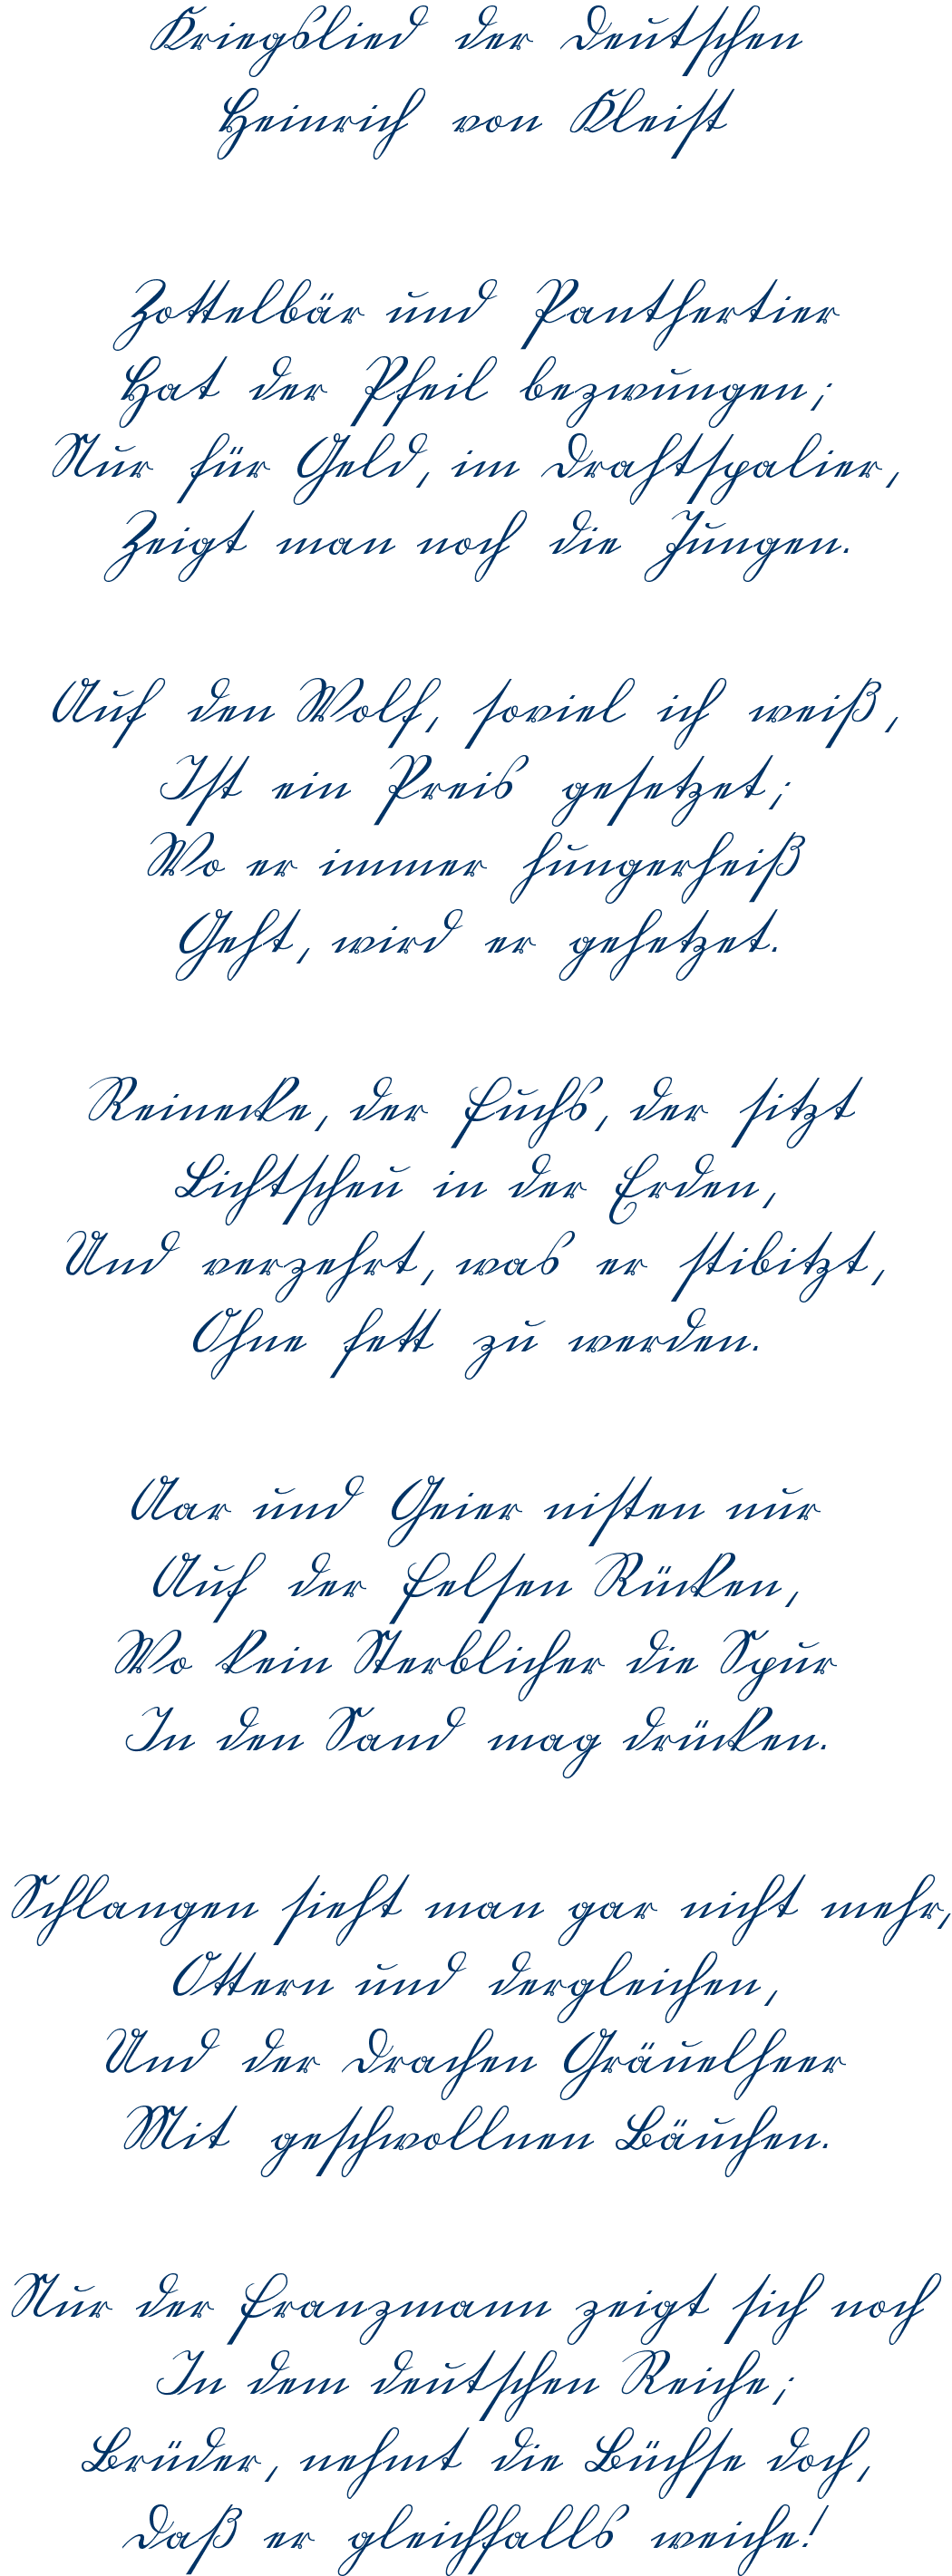 Kriegslied der Deutschen
Heinrich von Kleist
Zottelbär und Panthertier
Hat der Pfeil bezwungen;
Nur für Geld, im Drahtspalier,
Zeigt man noch die Jungen.
Auf den Wolf, soviel ich weiß,
Ist ein Preis gesetzet;
Wo er immer hungerheiß
Geht, wird er gehetzet.
Reinecke, der Fuchs, der sitzt
Lichtscheu in der Erden,
Und verzehrt, was er stibitzt,
Ohne fett zu werden.
Aar und Geier nisten nur
Auf der Felsen Rücken,
Wo kein Sterblicher die Spur
In den Sand mag drücken.
Schlangen sieht man gar nicht mehr,
Ottern und dergleichen,
Und der Drachen Gräuelheer
Mit geschwollnen Bäuchen.
Nur der Franzmann zeigt sich noch
In dem deutschen Reiche;
Brüder, nehmt die Büchse doch,
Daß er gleichfalls weiche!